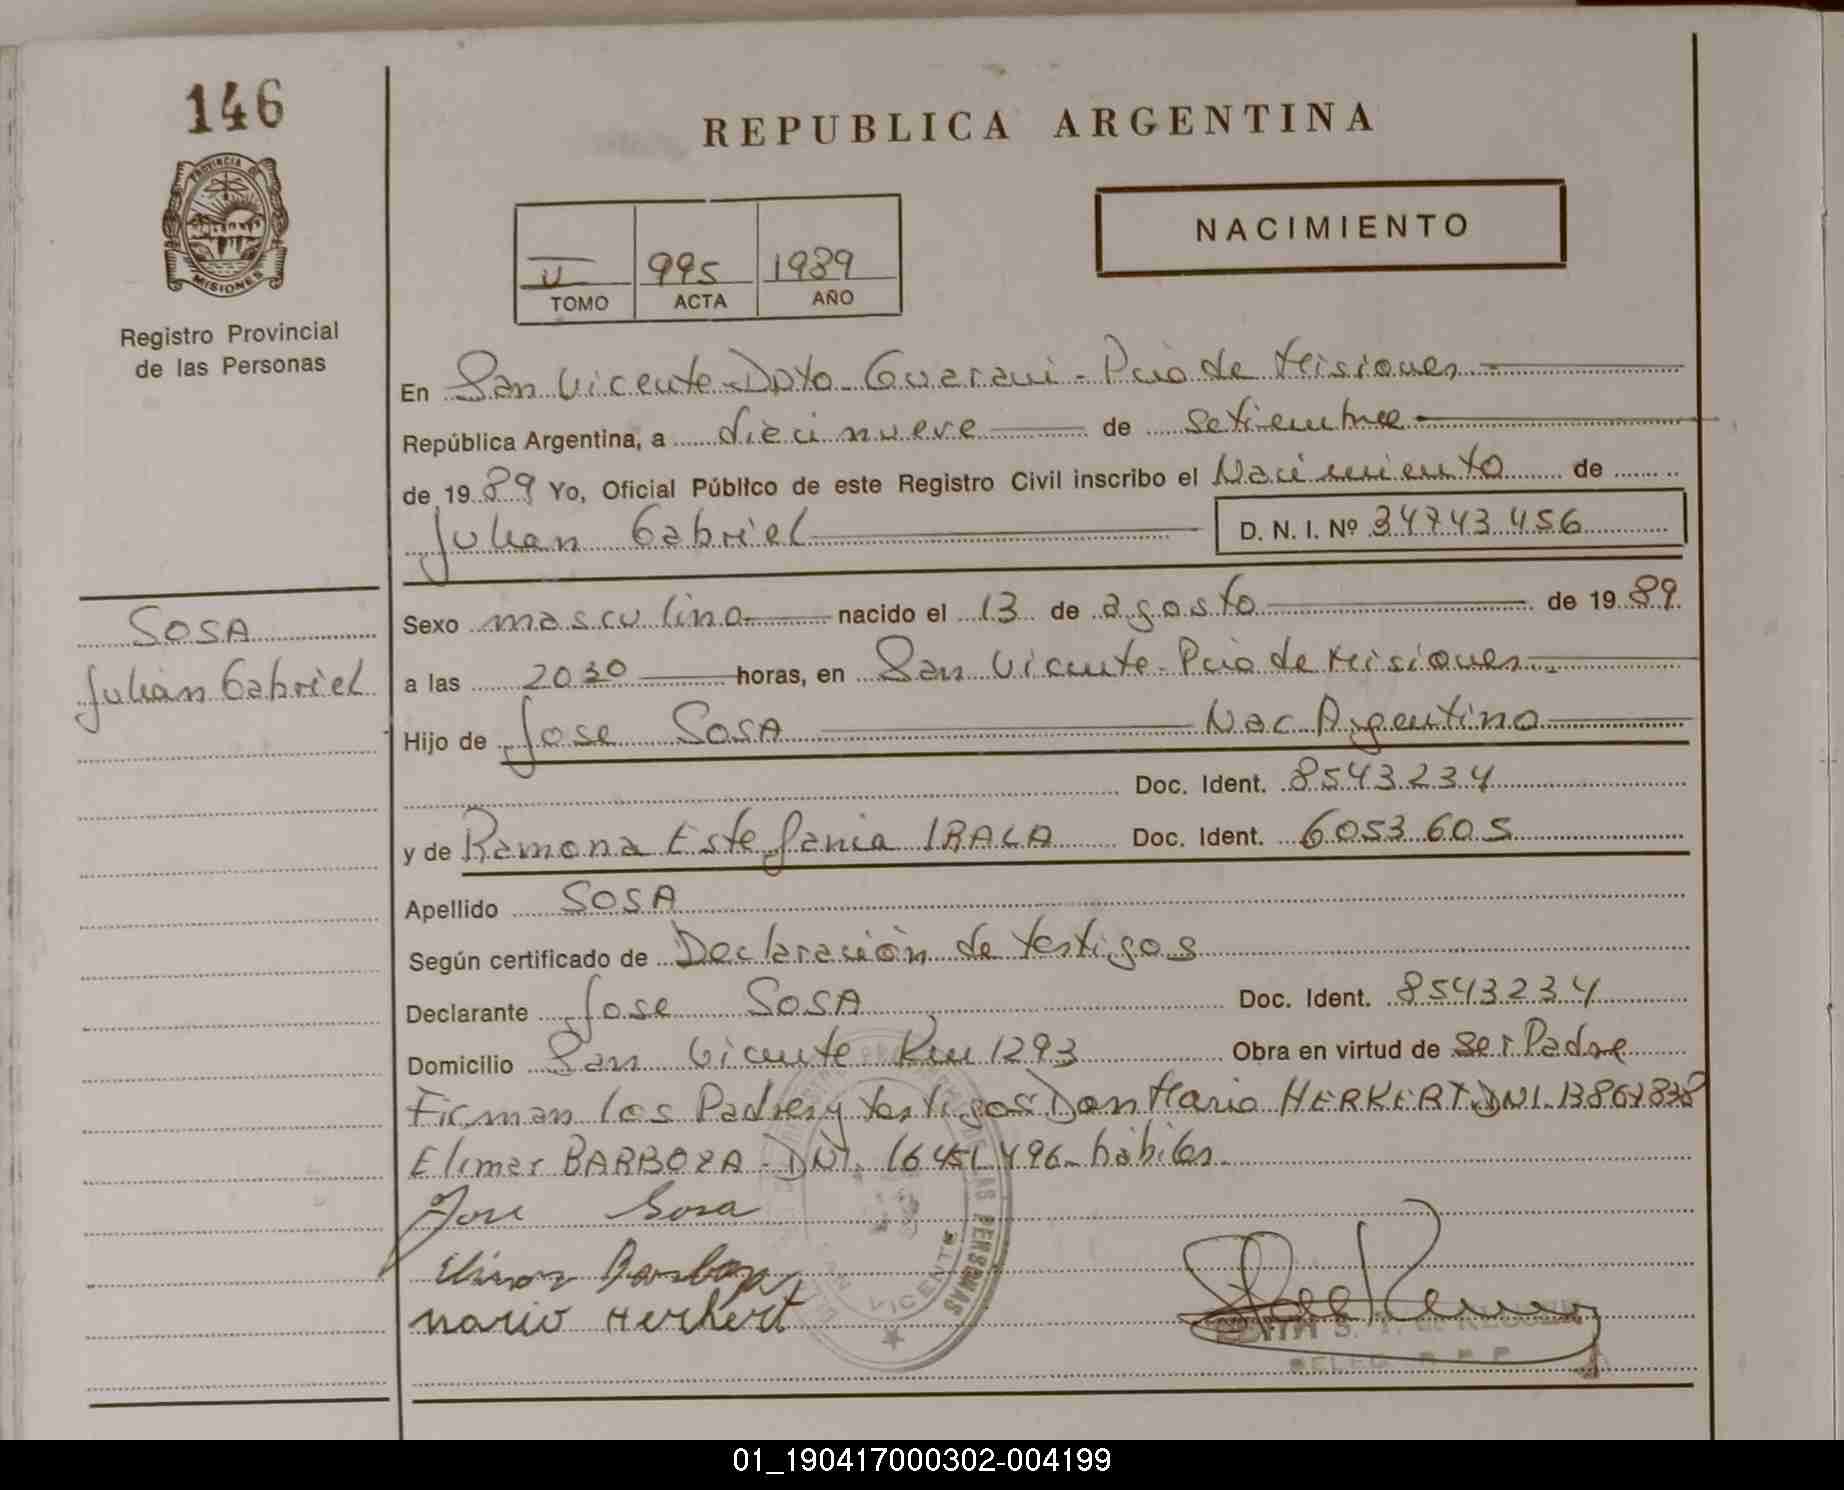 146
REPUBLICA ARGENTINA
PROVINCIA DE
MISIONES
NACIMIENTO
II 995 1989
TOMO ACTA AÑO
Registro Provincial
de las Personas
En San Vicente Dpto Guarani - Pcia de Misiones
República Argentina, a dieci nueve de setiembre
de 1989 Yo, Oficial Público de este Registro Civil inscribo el Nacimiento de
Julian Gabriel D. N. I. Nº 34743456
SOSA
Julián Gabriel
Sexo masculino nacido el 13 de agosto de 1989
a las 2030 horas, en San Vicente - Pcia de Misiones
Hijo de Jose SOSA Nac Argentino
Doc. Ident. 8543234
y de Ramona Estefania Doc. Ident. 6053605
Apellido SOSA
Según certificado de Declaración de testigos
Declarante Jose SOSA Doc. Ident. 8543234
Domicilio San Vicente Km 1293 Obra en virtud de ser Padre
Firman los Padres y testigos Don Mario HERKERT DNI.
BARBOZA - DNI. hábiles
Jose Sosa
Barboza
Mario Herkert
SAN VICENTE
DE LAS PERSONAS
DELEG. R.P.P.
01_190417000302-004199